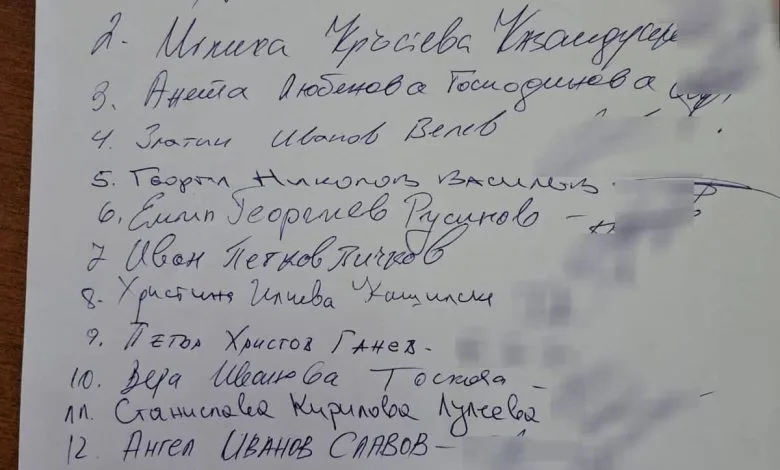 2. Милика Кръстева
3. Анета Любенова Господинова
4. Златин Иванов Велев
5. Георги Николов Василев
6. Емил Георгиев Русинов -
7 Иван Петков Пичков
8. Христина Илиева
9. Петър Христов Ганев -
10. Вера Иванова Тоскова -
11. Станислава Кирилова
12 Ангел Иванов Славов -